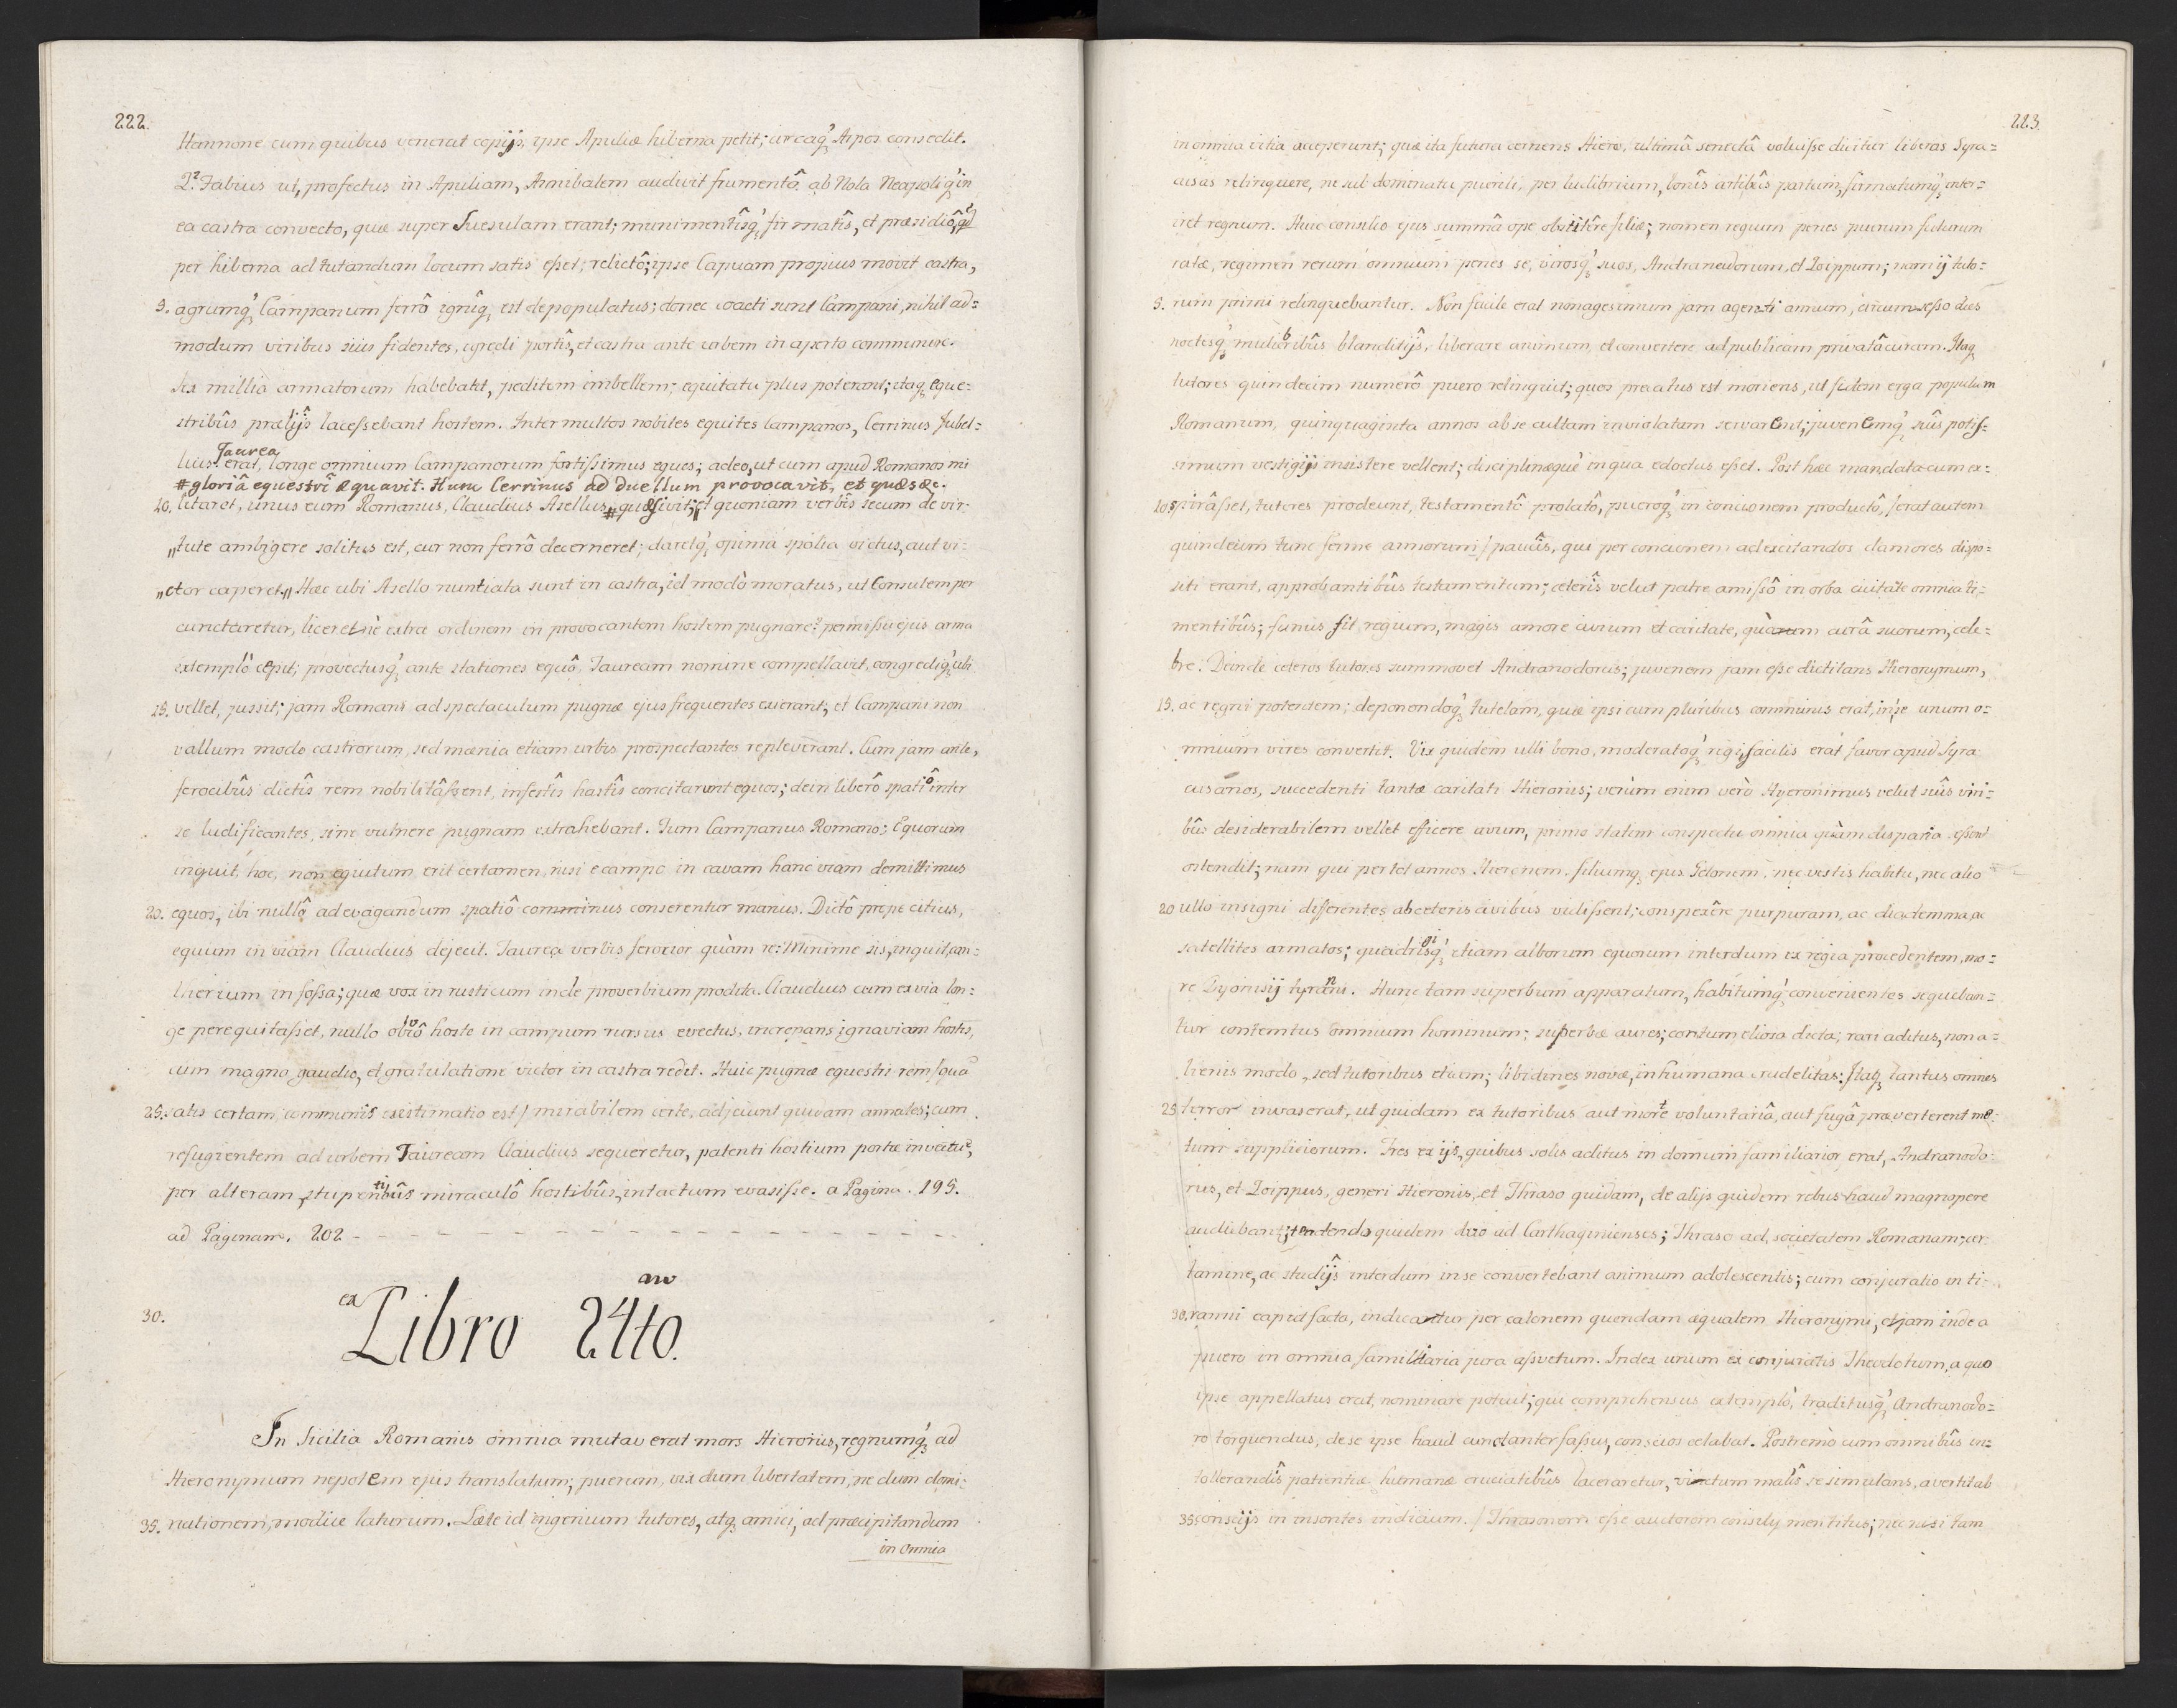 222.
Hannone cum quibus venerat copijs, ipse Apuliæ hiberna petit; circaq₃ Arpos consedit.
Q.s Fabius ut, profectus in Apuliam, Annibalem audivit frumentô ab Nola Neapoliq₃ in
ea castra convecto, quæ super Suesulam erant; munimentîsq₃ firmatîs, et præsidiô, qd
per hiberna ad tutandum locum satis eßet; relictô; ipse Capuam propius movit castra,
5. agrumq₃ Campanum ferrô ignîq₃ est depopulatus; donec coacti sunt Campani, nihil ad=
modum viribus suis fidentes, egredi portîs, et castra ante urbem in aperto communire.
Sex millia armatorum habebant, peditem imbellem; equitatu plus poterant; itaq₃ eque=
stribûs prælijs laceßebant hostem. Inter multos nobiles equites Campanos, Cerrinus Jubel=
Taurea
lius erat, longe omnium Campanorum fortißimus eques; adeo, ut cum apud Romanos mi
# gloriâ equestri æquavit. Hunc Cerrinus ad duellum provocavit, et quæsæc.
10. litaret, unus eum Romanus, Claudius Asellus # quæsivit; et quoniam verbîs secum de vir=
„tute ambigere solitus est, cur non ferrô decerneret; daretq₃ opima spolia victus, aut vi=
„ctor caperet.„ Hæc ubi Asello nuntiata sunt in castra, id modò moratus, ut Consulem per
cunctaretur, liceretnè extra ordinem in provocantem hostem pugnare? permissu ejus arma
extemplò cepit; provectusq₃ ante stationes equô, Tauream nomine compellavit, congrediq₃ ubi
15. vellet, jussit; jam Romani ad spectaculum pugnæ ejus frequentes exierant; et Campani non
vallum modo castrorum, sed mœnia etiam urbis prospectantes repleverant. Cum jam ante,
ferocibûs dictîs rem nobilitâßent, infestîs hastîs concitarunt equos; dein liberô spatiô inter
se ludificantes, sine vulnere pugnam extrahebant. Tum Campanus Romano: Equorum
inquit, hoc, non equitum erit certamen, nisi e campo in cavam hanc viam demittimus
20. equos, ibi nullô ad evagandum spatiô comminus conserentur manus. Dictô prope citius,
equum in viam Claudius dejecit. Taurea verbis ferocior quàm re: Minime sis, inquit, can=
therium in foßa; quæ vox in rusticum inde proverbium prodita. Claudius cum ea via lon=
ge perequitaßet, nullo obviô hoste in campum rursus evectus, increpans ignaviam hostis,
cum magno gaudio, et gratulatione victor in castra redit. Huic pugnæ equestri rem /quâ
25. satis certam, communîs existimatio est/ mirabilem certe, adjiciunt quidam annales; cum
refugientem ad urbem Tauream Claudius sequeretur, patenti hostium portæ invectus,
per alteram, stupentibûs miraculô hostibûs, intactum evasiße. a Pagina. 195.
ad Paginam. 202 - - - - - - - - - - - - - - -
30. ex Libro 24to.
In Sicilia Romanis omnia mutaverat mors Hieronis, regnumq₃ ad
Hieronymum nepotem ejus translatum; puerum, vix dum libertatem, ne dum domi=
35. nationem, modice laturum. Læte id ingenium tutores, atq₃ amici, ad præcipitandum
in omnia
223.
in omnia vitia acceperunt; quæ ita futura cernens Hiero, ultimâ senectâ voluiße dicitur liberas Syra=
cusas relinquere, ne sub dominatu puerili, per ludibrium, bonîs artibûs partum, firmatumq₃ inter=
iret regnum. Huic consilio ejus summâ ope obstitêre filiæ; nomen regium penes puerum futurum
ratæ, regimen rerum omnium penes se, virosq₃ suos, Andranodorum, et Zoippum; nam ij tuto=
5. rum primi relinquebantur. Non facile erat nonagesimum jam agenti annum, circumseßo dies
noctesq₃ mulieribûs blanditijs, liberare animum, et convertere ad publicam privatâ curam. Itaq₃
tutores quindecim numerô puero relinquit; quos precatus est moriens, ut fidem erga populum
Romanum, quinquaginta annos ab se cultam inviolatam servarent; juvenemq₃ suîs potis=
simum vestigijs insistere vellent; disciplinæquè in qua edoctus eßet. Post hæc mandata cum ex=
10. spirâßet, tutores prodeunt, testamentô prolatô, pueroq₃ in concionem productô, /erat autem
quindecim tunc ferme annorum/ paucîs, qui per concionem ad excitandos clamores dispo=
siti erant, approbantibûs testamentum; ceterîs velut patre amißô in orba civitate omnia ti=
mentibûs; funus fit regium, magis amore civium et caritate, quàm curâ suorum, cele=
bre. Deinde ceteros tutores summovet Andranodorus; juvenem jam eße dictitans Hieronymum,
15. ac regni potentem; deponendoq₃ tutelam, quæ ipsi cum pluribus communis erat, in se unum o=
mnium vires convertit. Vix quidem ulli bono, moderatoq₃ regi, facilis erat favor apud Syra
cusanos, succedenti tantæ caritati Hieronis; verùm enim verò Hyeronimus velut suîs viti=
bûs desiderabilem vellet efficere avum, primo statim conspectu omnia quàm disparia eßent
ostendit; nam qui per tot annos Hieronem, filiumq₃ ejus Gelonem, nec vestis habitu, nec alio
20. ullo insigni differentes ab ceteris civibus vidißent; conspexêre purpuram, ac diademma, ac
satellites armatos; quadrigisq₃ etiam alborum equorum interdum ex regia procedentem, mo=
re Dyonisij tyranni. Hunc tam superbum apparatum, habitumq₃ convenientes sequeban=
tur contemtus omnium hominum; superbæ aures; contumeliosa dicta; rari aditus, non a=
lienis modo, sed tutoribus etiam; libidines novæ, inhumana crudelitas: Itaq₃ tantus omnes
25. terror invaserat, ut quidam ex tutoribus aut morte voluntariâ, aut fugâ præverterent me=
tum suppliciorum. Tres ex ijs, quibus solis aditus in domum familiarior erat, Andranodo=
rus, et Zoippus, generi Hieronis, et Thraso quidam, de alijs quidem rebus haud magnopere
audiebantur; tendendo quidem duo ad Carthaginienses; Thraso ad societatem Romanam; cer=
tamine, ac studijs interdum in se convertebant animum adolescentis; cum conjuratio in ti=
30. ranni caput facta, indicatur per calonem quendam æqualem Hieronymi, et jam inde a
puero in omnia familiaria jura aßvetum. Index unum ex conjuratis Theodotum, a quo
ipse appellatus erat, nominare potuit; qui comprehensus extemplò, traditusq₃ Andranodo=
ro torquendus, de se ipse haud cunctanter faßus, conscios celabat. Postremò cum omnibûs in=
tollerandîs patientiæ humanæ cruciatibûs laceraretur, victum malîs se simulans, avertit ab
35. conscijs in insontes indicium. / Thrasonem eße auctorem consily mentitus; nec nisi tam